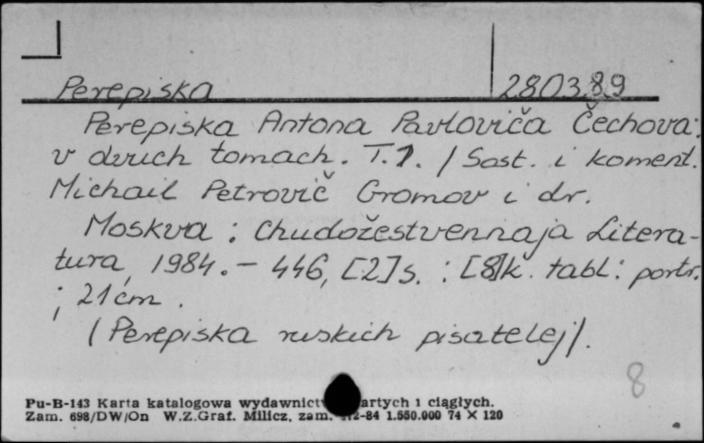 Perepiska 280389
Perepiska Antona Pavloviča Čechova:
v dvuch tomach. T.1. / Sost. i koment.
Michail Petrovič Gromov i dr.
Moskva : Chudožestvennaja Litera-
tura, 1984. - 446, [2] s. : [8] k. tabl : portr.
; 21 cm.
(Perepiska ruskich pisatelej).
8
Pu-B-143 Karta katalogowa wydawnictw zwartych i ciągłych.
Zam. 698/DW/On W.Z.Graf. Milicz, zam. 2-84 1.550.000 74 X 120